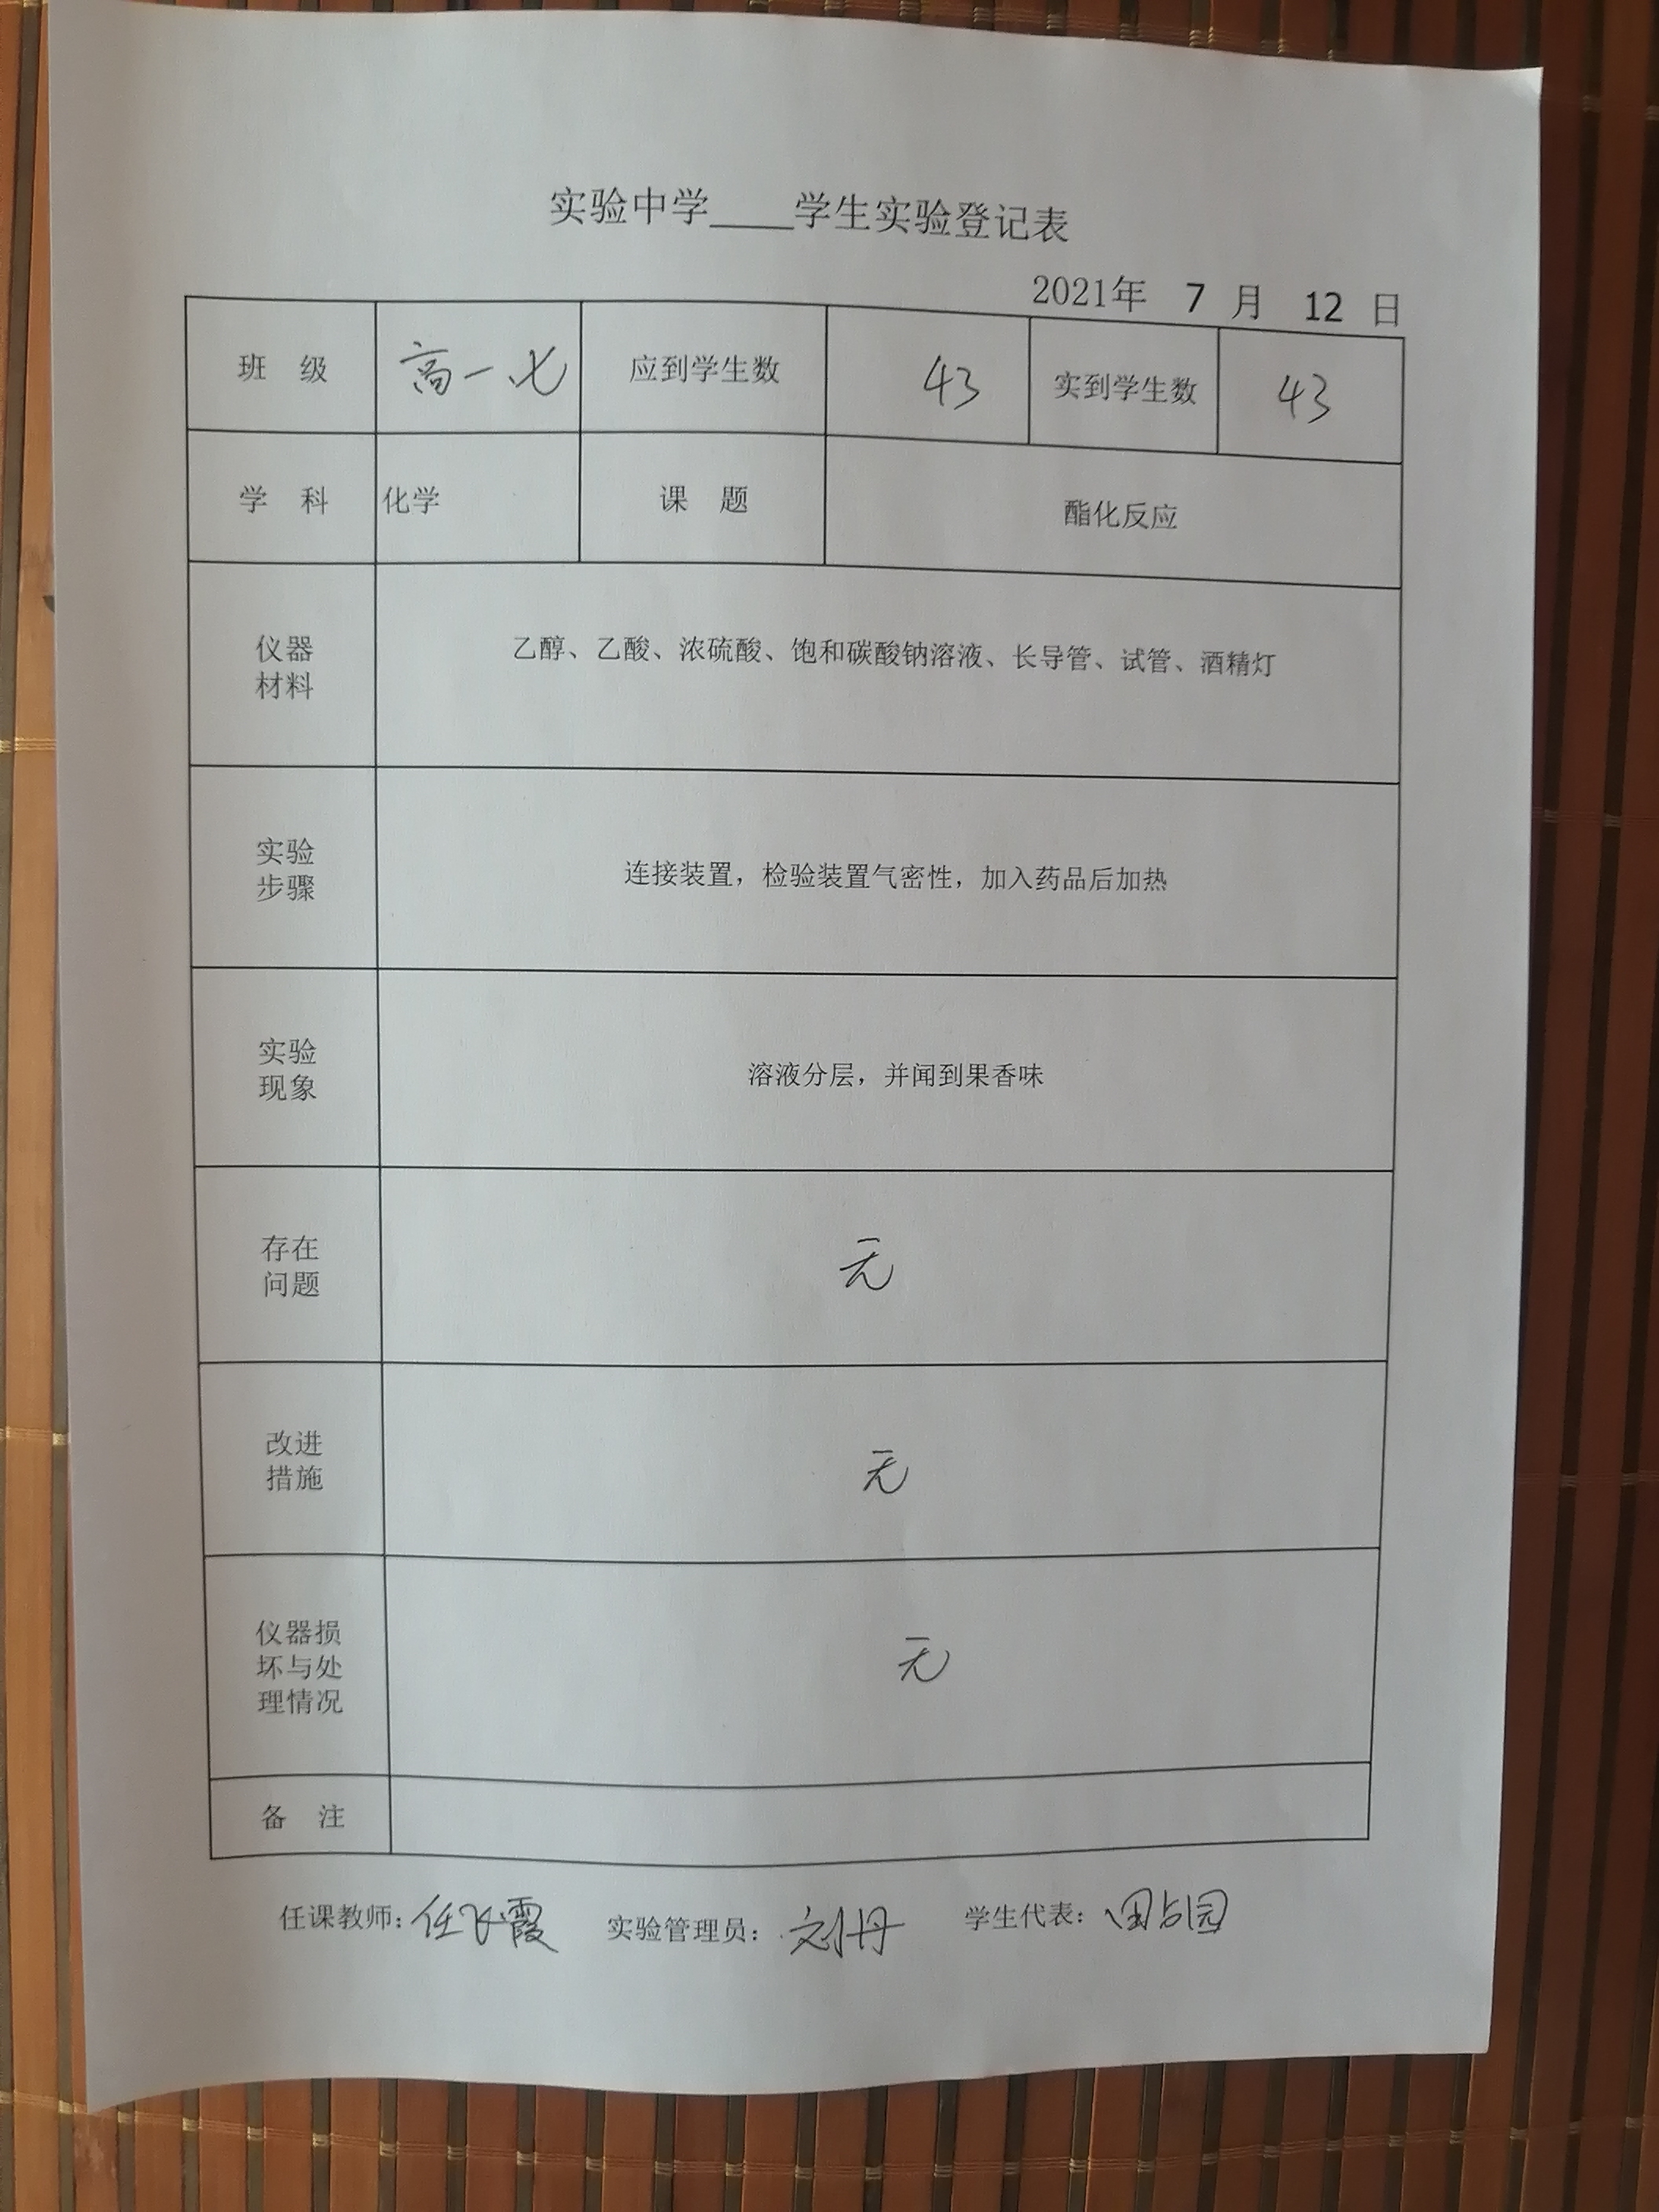 实验中学____学生实验登记表
2021年 7 月 12 日
班 级 高一.七 应到学生数 43 实到学生数 43
学 科 化学 课 题 酯化反应
仪器
材料
乙醇、乙酸、浓硫酸、饱和碳酸钠溶液、长导管、试管、酒精灯
实验
步骤
连接装置，检验装置气密性，加入药品后加热
实验
现象
溶液分层，并闻到果香味
存在
问题
无
改进
措施
无
仪器损
坏与处
理情况
无
备 注
任课教师：任飞霞 实验管理员：刘丹 学生代表：田园